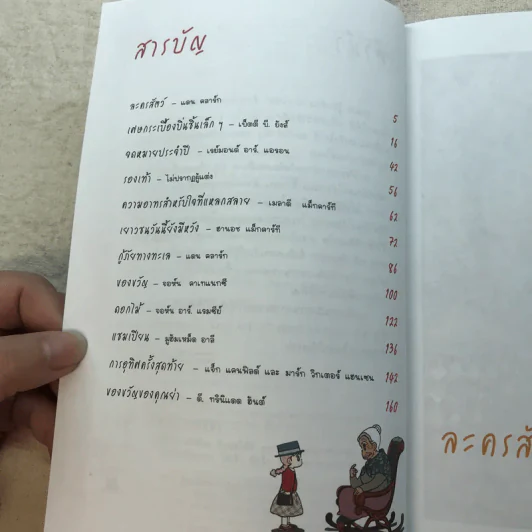 สารบัญ
ละครสัตว์ – แดน คลาร์ก 5
เศษกระเบื้องบิ่นชิ้นเล็ก ๆ – เบ็ตตี บี. ยังส์ 16
จดหมายประจำปี – เรย์มอนด์ อาร์. แอรอน 42
รองเท้า – ไม่ปรากฏผู้แต่ง 56
ความอาทรสำหรับใจที่แหลกสลาย – เมลาดี แม็กคาร์ที 62
เยาวชนวันนี้ยังมีหวัง – ฮานอช แม็กคาร์ที 72
กู้ภัยทางทะเล – แดน คลาร์ก 86
ของขวัญ – จอห์น คาเทแนทซี 100
ดอกไม้ – จอห์น อาร์. แรมซีย์ 122
แชมเปียน – มูฮัมเหม็ด อาลี 136
การอุทิศครั้งสุดท้าย – แจ็ก แคนฟิลด์ และ มาร์ก วิกเตอร์ แฮนเซน 142
ของขวัญของคุณย่า – ดี. ทรินิแดด ฮันต์ 160
ละครสั